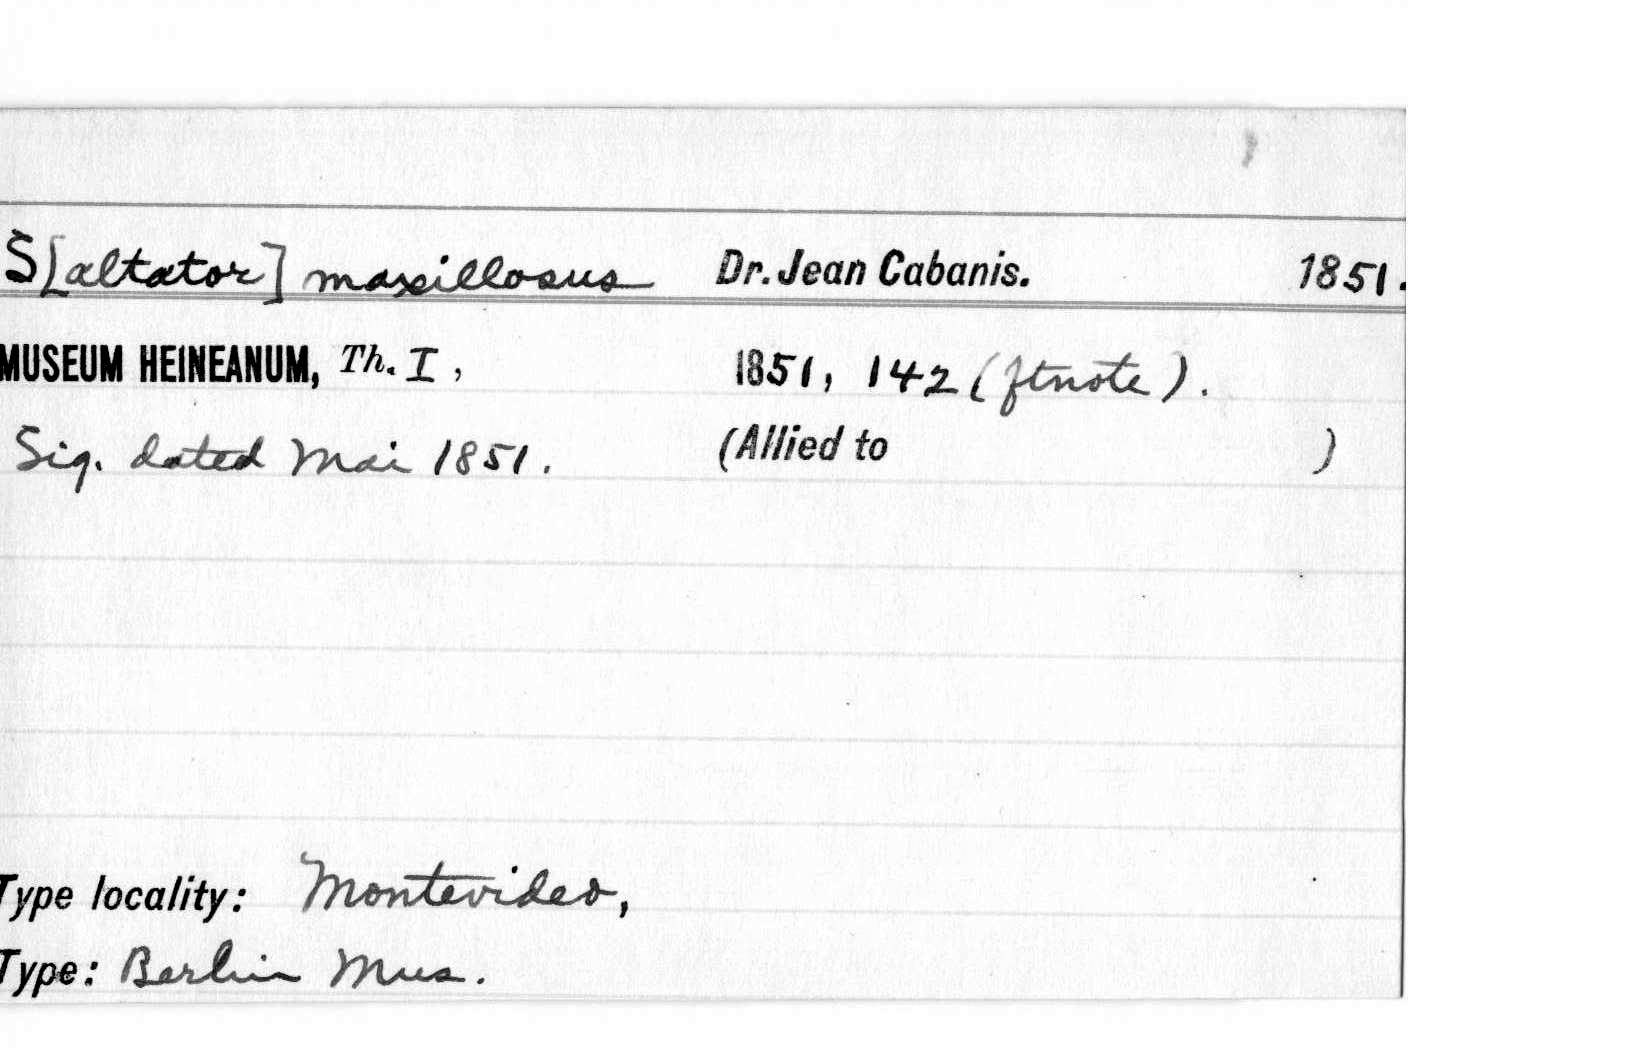 S[altator] maxillosus Dr. Jean Cabanis. 1851.
MUSEUM HEINEANUM, Th. I, 1851, 142 (ftnote).
Sig. dated Mai 1851. (Allied to )
Type locality: Montevideo,
Type: Berlin Mus.